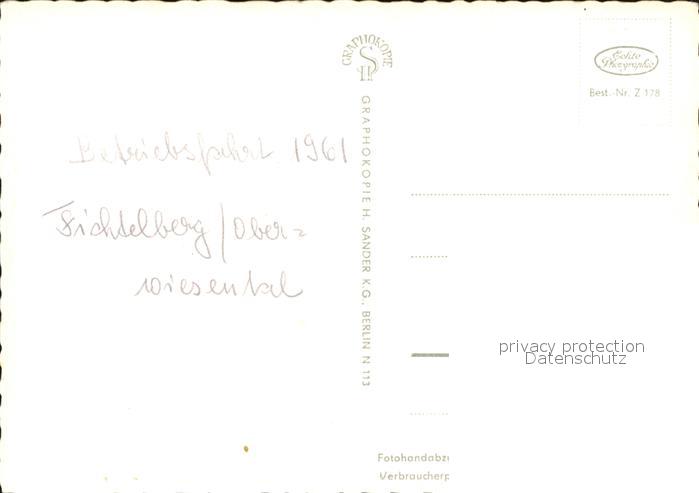 Betriebsfahrt 1961
Fichtelberg / Ober=
wiesental
GRAPHOKOPIE
H S
GRAPHOKOPIE H. SANDER K.G., BERLIN N 113
Echte
Photographie
Best.-Nr. Z 178
privacy protection
Datenschutz
Fotohandabzu
Verbraucherp